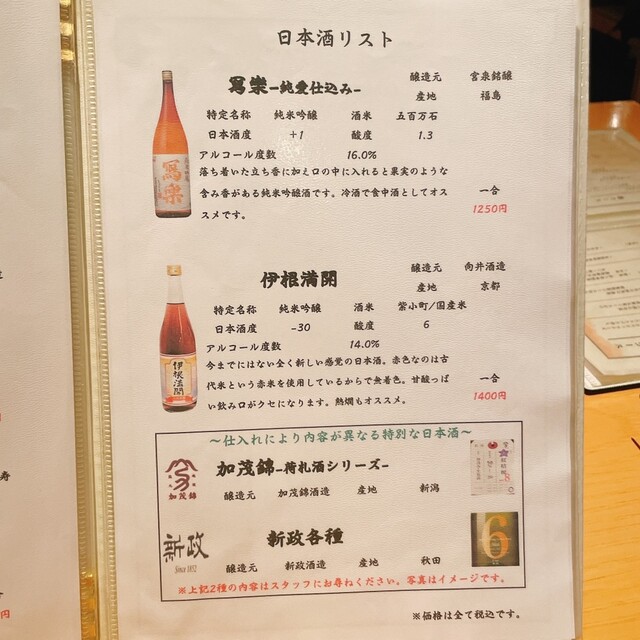 日本酒リスト
寫樂-純愛仕込み-
醸造元 宮泉銘醸
産地 福島
特定名称 純米吟醸 酒米 五百万石
日本酒度 +1 酸度 1.3
アルコール度数 16.0%
落ち着いた立ち香に加え口の中に入れると果実のような
含み香がある純米吟醸酒です。冷酒で食中酒としてオス
スメです。
一合
1250円
寫樂
伊根満開
醸造元 向井酒造
産地 京都
特定名称 純米吟醸 酒米 紫小町/国産米
日本酒度 -30 酸度 6
アルコール度数 14.0%
今までにはない全く新しい感覚の日本酒。赤色なのは古
代米という赤米を使用しているからで無着色。甘酸っぱ
い飲み口がクセになります。熱燗もオススメ。
一合
1400円
伊根満開
～仕入れにより内容が異なる特別な日本酒～
加茂錦-荷札酒シリーズ-
醸造元 加茂錦酒造 産地 新潟
加茂錦
新政各種
醸造元 新政酒造 産地 秋田
新政
Since 1852
6
※上記2種の内容はスタッフにお尋ねください。写真はイメージです。
※価格は全て税込です。
寿
円